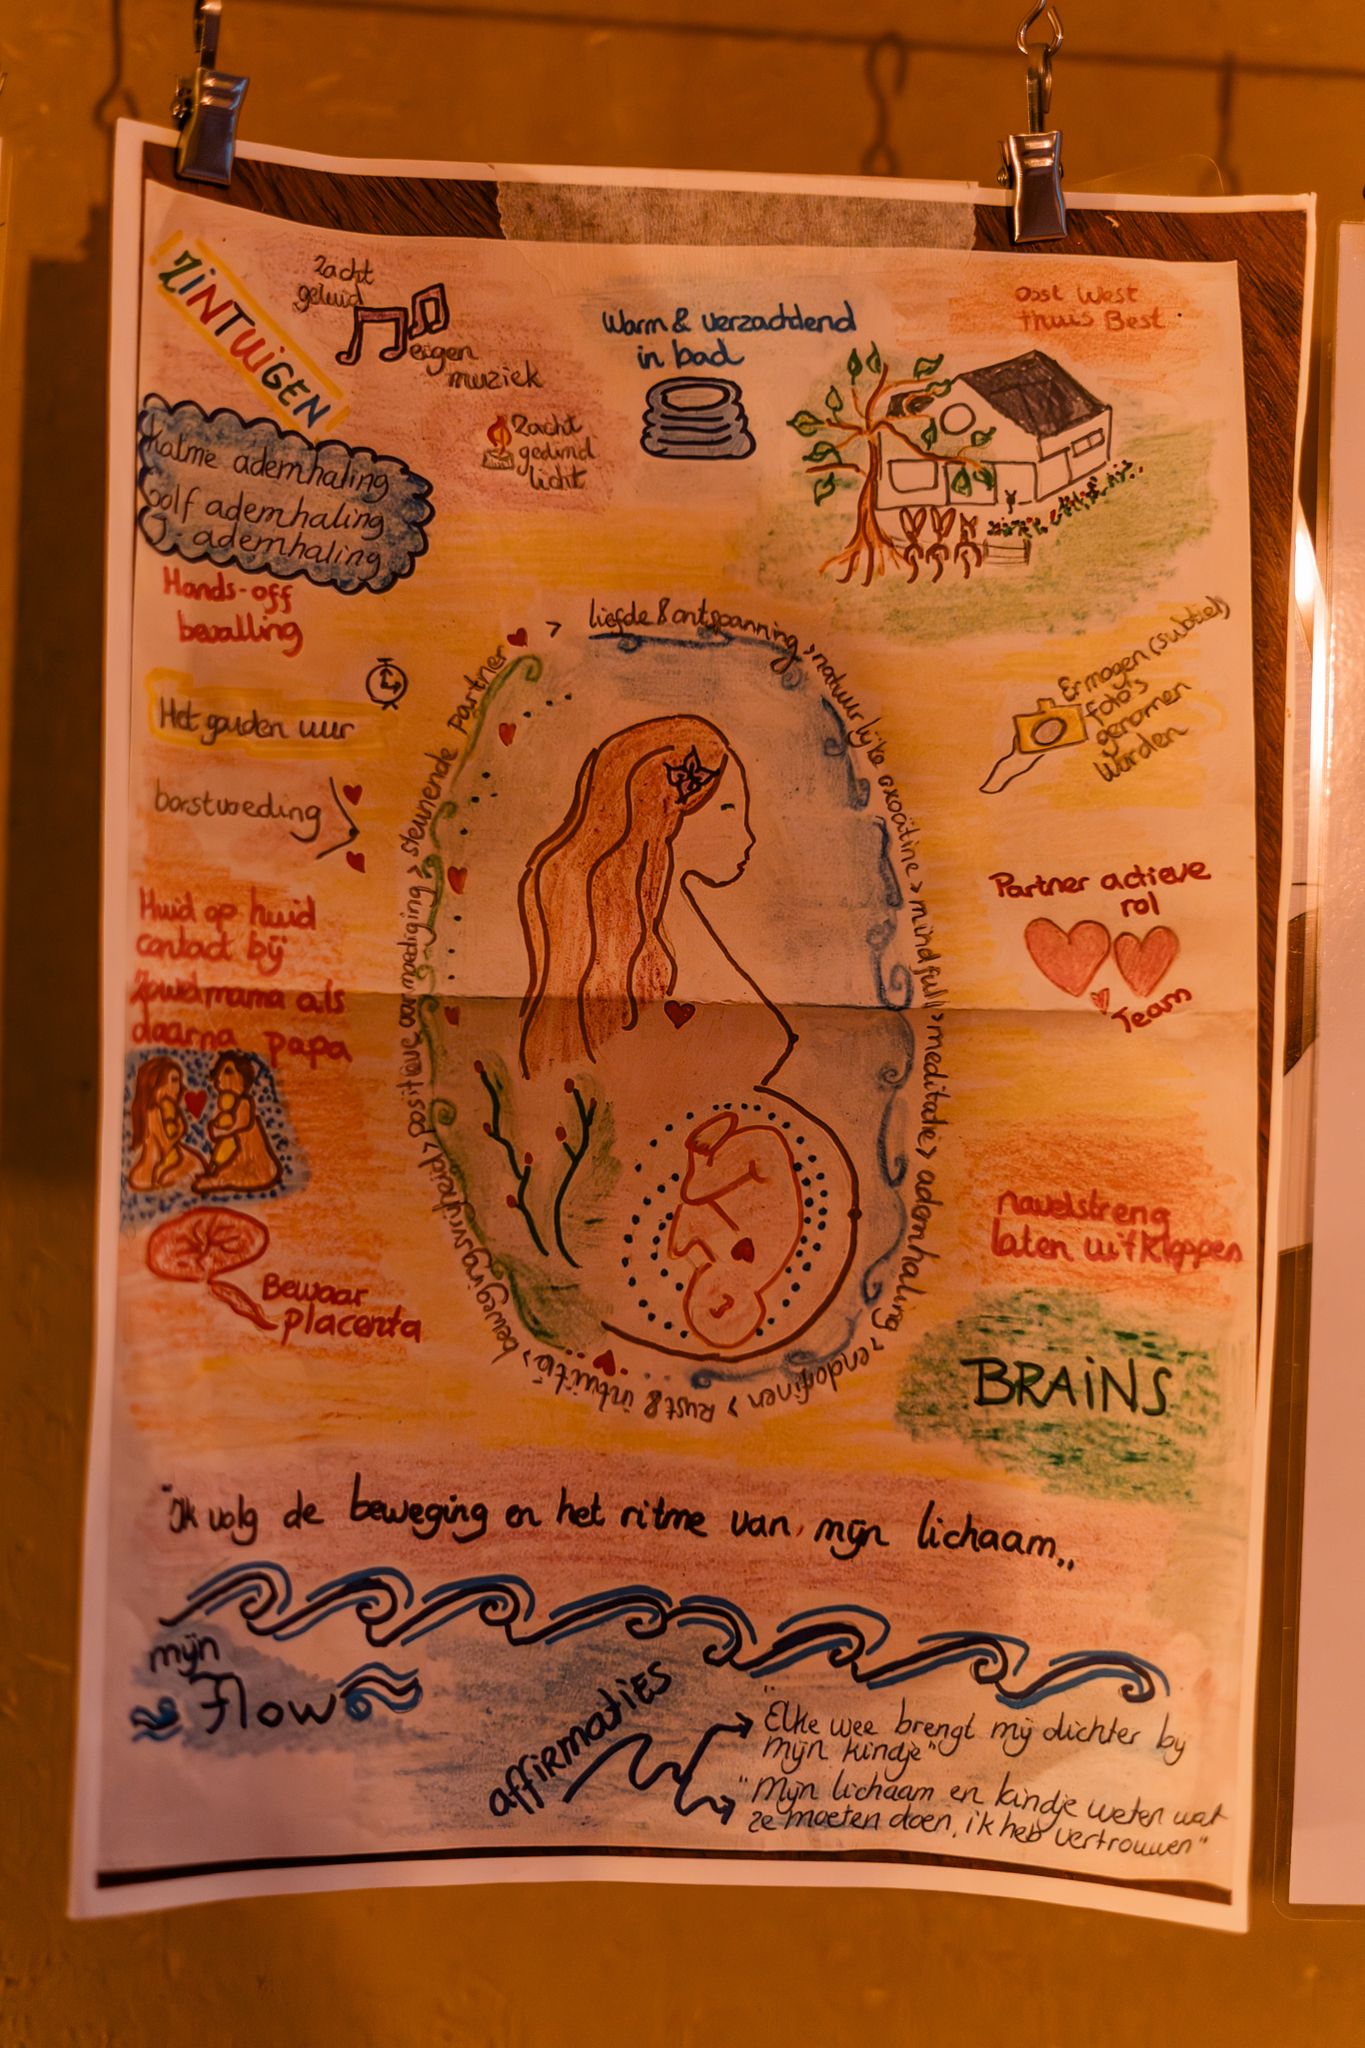 ZINTUIGEN
Zacht
geluid
eigen
muziek
Zacht
gedimd
licht
Warm & verzachtend
in bad
Oost West
thuis Best
kalme ademhaling
golf ademhaling
J-ademhaling
Hands-off
bevalling
Het gouden uur
borstvoeding
Huid op huid
contact bij
zowel mama als
daarna papa
Bewaar
placenta
> liefde & ontspanning > natuurlijke oxcitine > mindfull > meditatie > ademhaling > endorfinen > Rust & intuïtie > bewegingsvrijheid > positieve aanmoediging > steunende partner
Er mogen (subtiel)
foto's
genomen
worden
Partner actieve
rol
Team
navelstreng
laten uitkloppen
BRAINS
"Ik volg de beweging en het ritme van mijn lichaam,,
mijn
Flow
affirmaties
"Elke wee brengt mij dichter bij
mijn kindje"
"Mijn lichaam en kindje weten wat
ze moeten doen, ik heb vertrouwen"